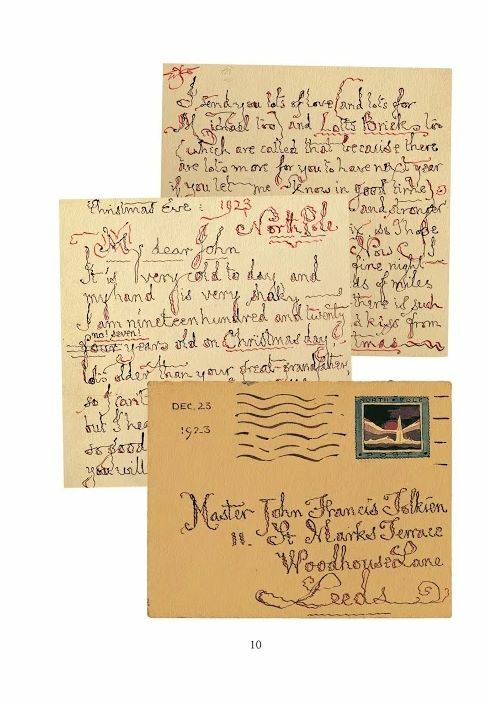 I send you lots of love (and lots for
Michael too) and Lotts Bricks too
(which are called that because there
are lots more for you to have next year
if you let me know in good time)
and stronger
I hope
Now I
fine night
ds of miles
there is such
d kiss from
tmas
Christmas Eve : 1923
North Pole
My dear John
It is very cold to day and
my hand is very shaky
I am nineteen hundred and twenty
no! seven!
four years old on Christmas day
lots older than your great-grandfather,
so I can't
but I hea
so good
you will
DEC, 23
1923
NORTH POLE
Master John Francis Tolkien
11. St Marks Terrace
Woodhouse Lane
Leeds
10